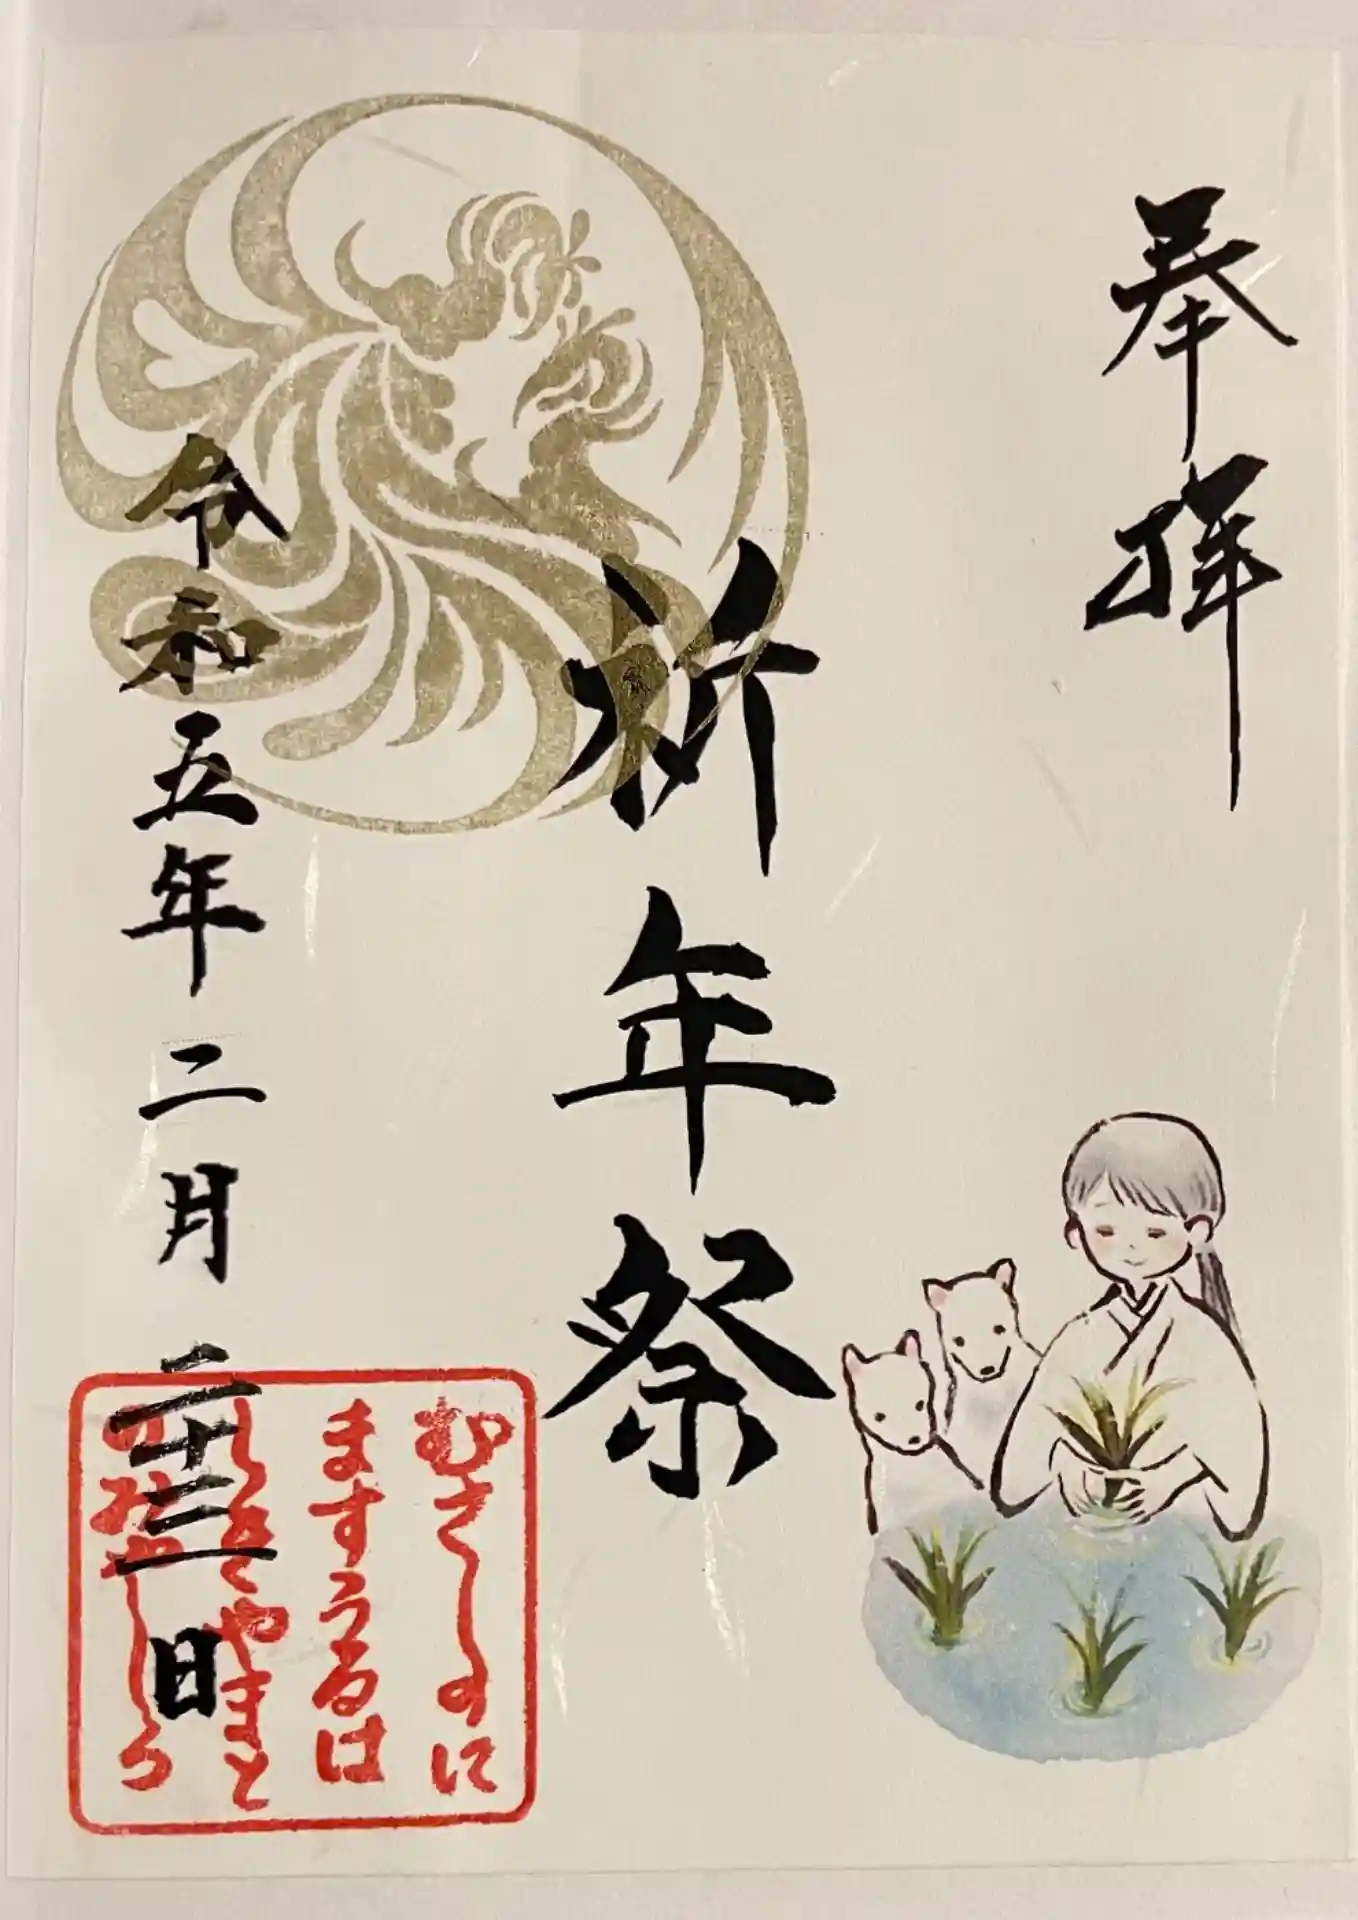 奉拝
祈年祭
令和五年二月二十三日
むさしのに
ますうるは
しきやまと
のみやしろ